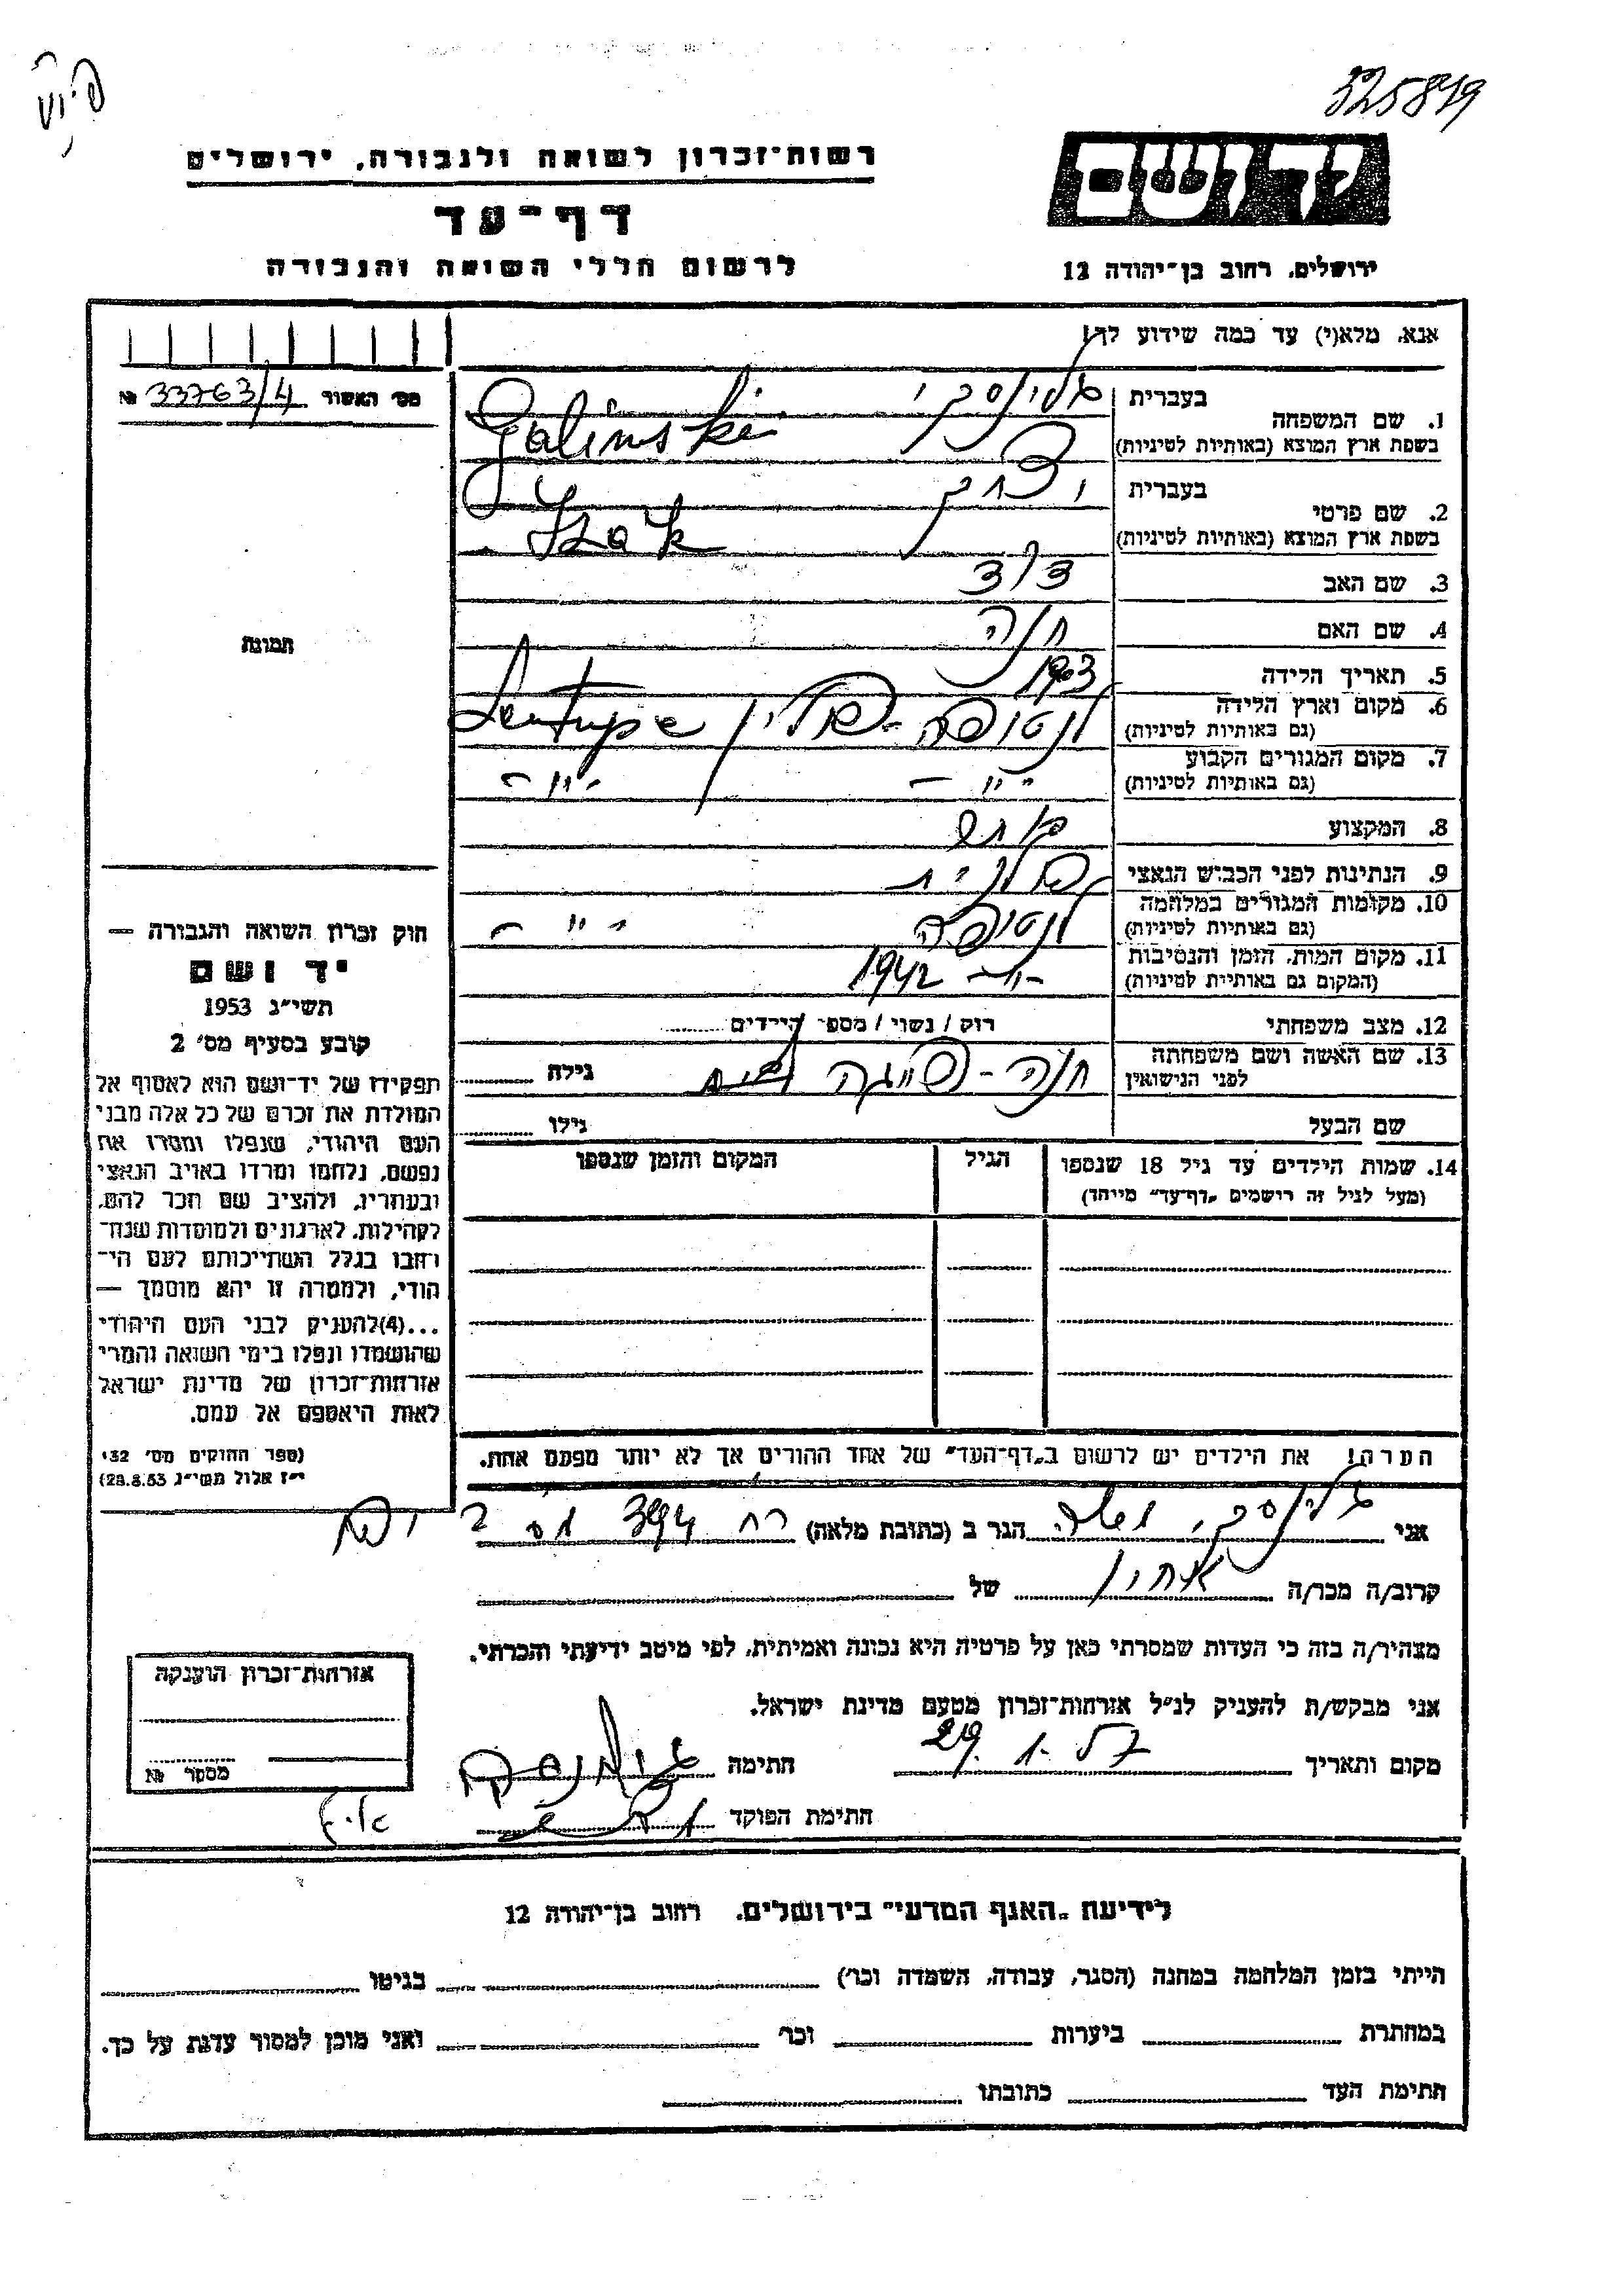 325819
יד ושם
רשות־זכרון לשואה ולגבורה, ירושלים
דף־עד
לרשום חללי השואה והגבורה
ירושלים, רחוב בן־יהודה 12
אנא, מלא(י) עד כמה שידוע לך!
מס׳ האשור 33763/4 №
1. שם המשפחה
בעברית גלינסקי
בשפת ארץ המוצא (באותיות לטיניות) Galinski
2. שם פרטי
בעברית יצחק
בשפת ארץ המוצא (באותיות לטיניות) Yzak
3. שם האב
4. שם האם חנה
5. תאריך הלידה 1903
6. מקום וארץ הלידה
(גם באותיות לטיניות) לנטופה - פולין Lentupe
7. מקום המגורים הקבוע
(גם באותיות לטיניות) -״- -״-
8. המקצוע
9. הנתינות לפני הכבוש הנאצי פולנית
10. מקומות המגורים במלחמה
(גם באותיות לטיניות) לנטופה -״-
11. מקום המות, הזמן והנסיבות
(המקום גם באותיות לטיניות) -״- 1942
12. מצב משפחתי רוק / נשוי / מספר הילדים
13. שם האשה ושם משפחתה
לפני הנישואין חנה - גילה
שם הבעל גילו
14. שמות הילדים עד גיל 18 שנספו
(מעל לגיל זה רושמים „דף־עד״ מייחד)
הגיל
המקום והזמן שנספו
הערה! את הילדים יש לרשום ב„דף־העד״ של אחד ההורים אך לא יותר מפעם אחת.
תמונה
חוק זכרון השואה והגבורה —
יד ושם
תשי״ג 1953
קובע בסעיף מס׳ 2
תפקידו של יד־ושם הוא לאסוף אל
המולדת את זכרם של כל אלה מבני
העם היהודי, שנפלו ומסרו את
נפשם, נלחמו ומרדו באויב הנאצי
ובעוזריו, ולהציב שם וזכר להם,
לקהילות, לארגונים ולמוסדות שנח־
רחבו בגלל השתייכותם לעם הי־
הודי, ולמטרה זו יהא מוסמך —
...(4)להעניק לבני העם היהודי
שהושמדו ונפלו בימי השואה והמרי
אזרחות־זכרון של מדינת ישראל
לאות היאספם אל עמם.
(ספר החוקים מס׳ 132
י״ז אלול תשי״ג 28.8.53)
אני גלינסקי הגר ב (כתובת מלאה) רח 394
קרוב/ה מכר/ה של
מצהיר/ה בזה כי העדות שמסרתי כאן על פרטיה היא נכונה ואמיתית, לפי מיטב ידיעתי והכרתי.
אני מבקש/ת להעניק לנ״ל אזרחות־זכרון מטעם מדינת ישראל.
מקום ותאריך 29.1.57 חתימה
חתימת הפוקד
אזרחות־זכרון הוענקה
מספר №
לידיעת „האגף המדעי״ בירושלים, רחוב בן־יהודה 12
הייתי בזמן המלחמה במחנה (הסגר, עבודה, השמדה וכר׳) בגיטו
במחתרת ביערות וכר׳ ואני מוכן למסור עדות על כך.
חתימת העד כתובתו